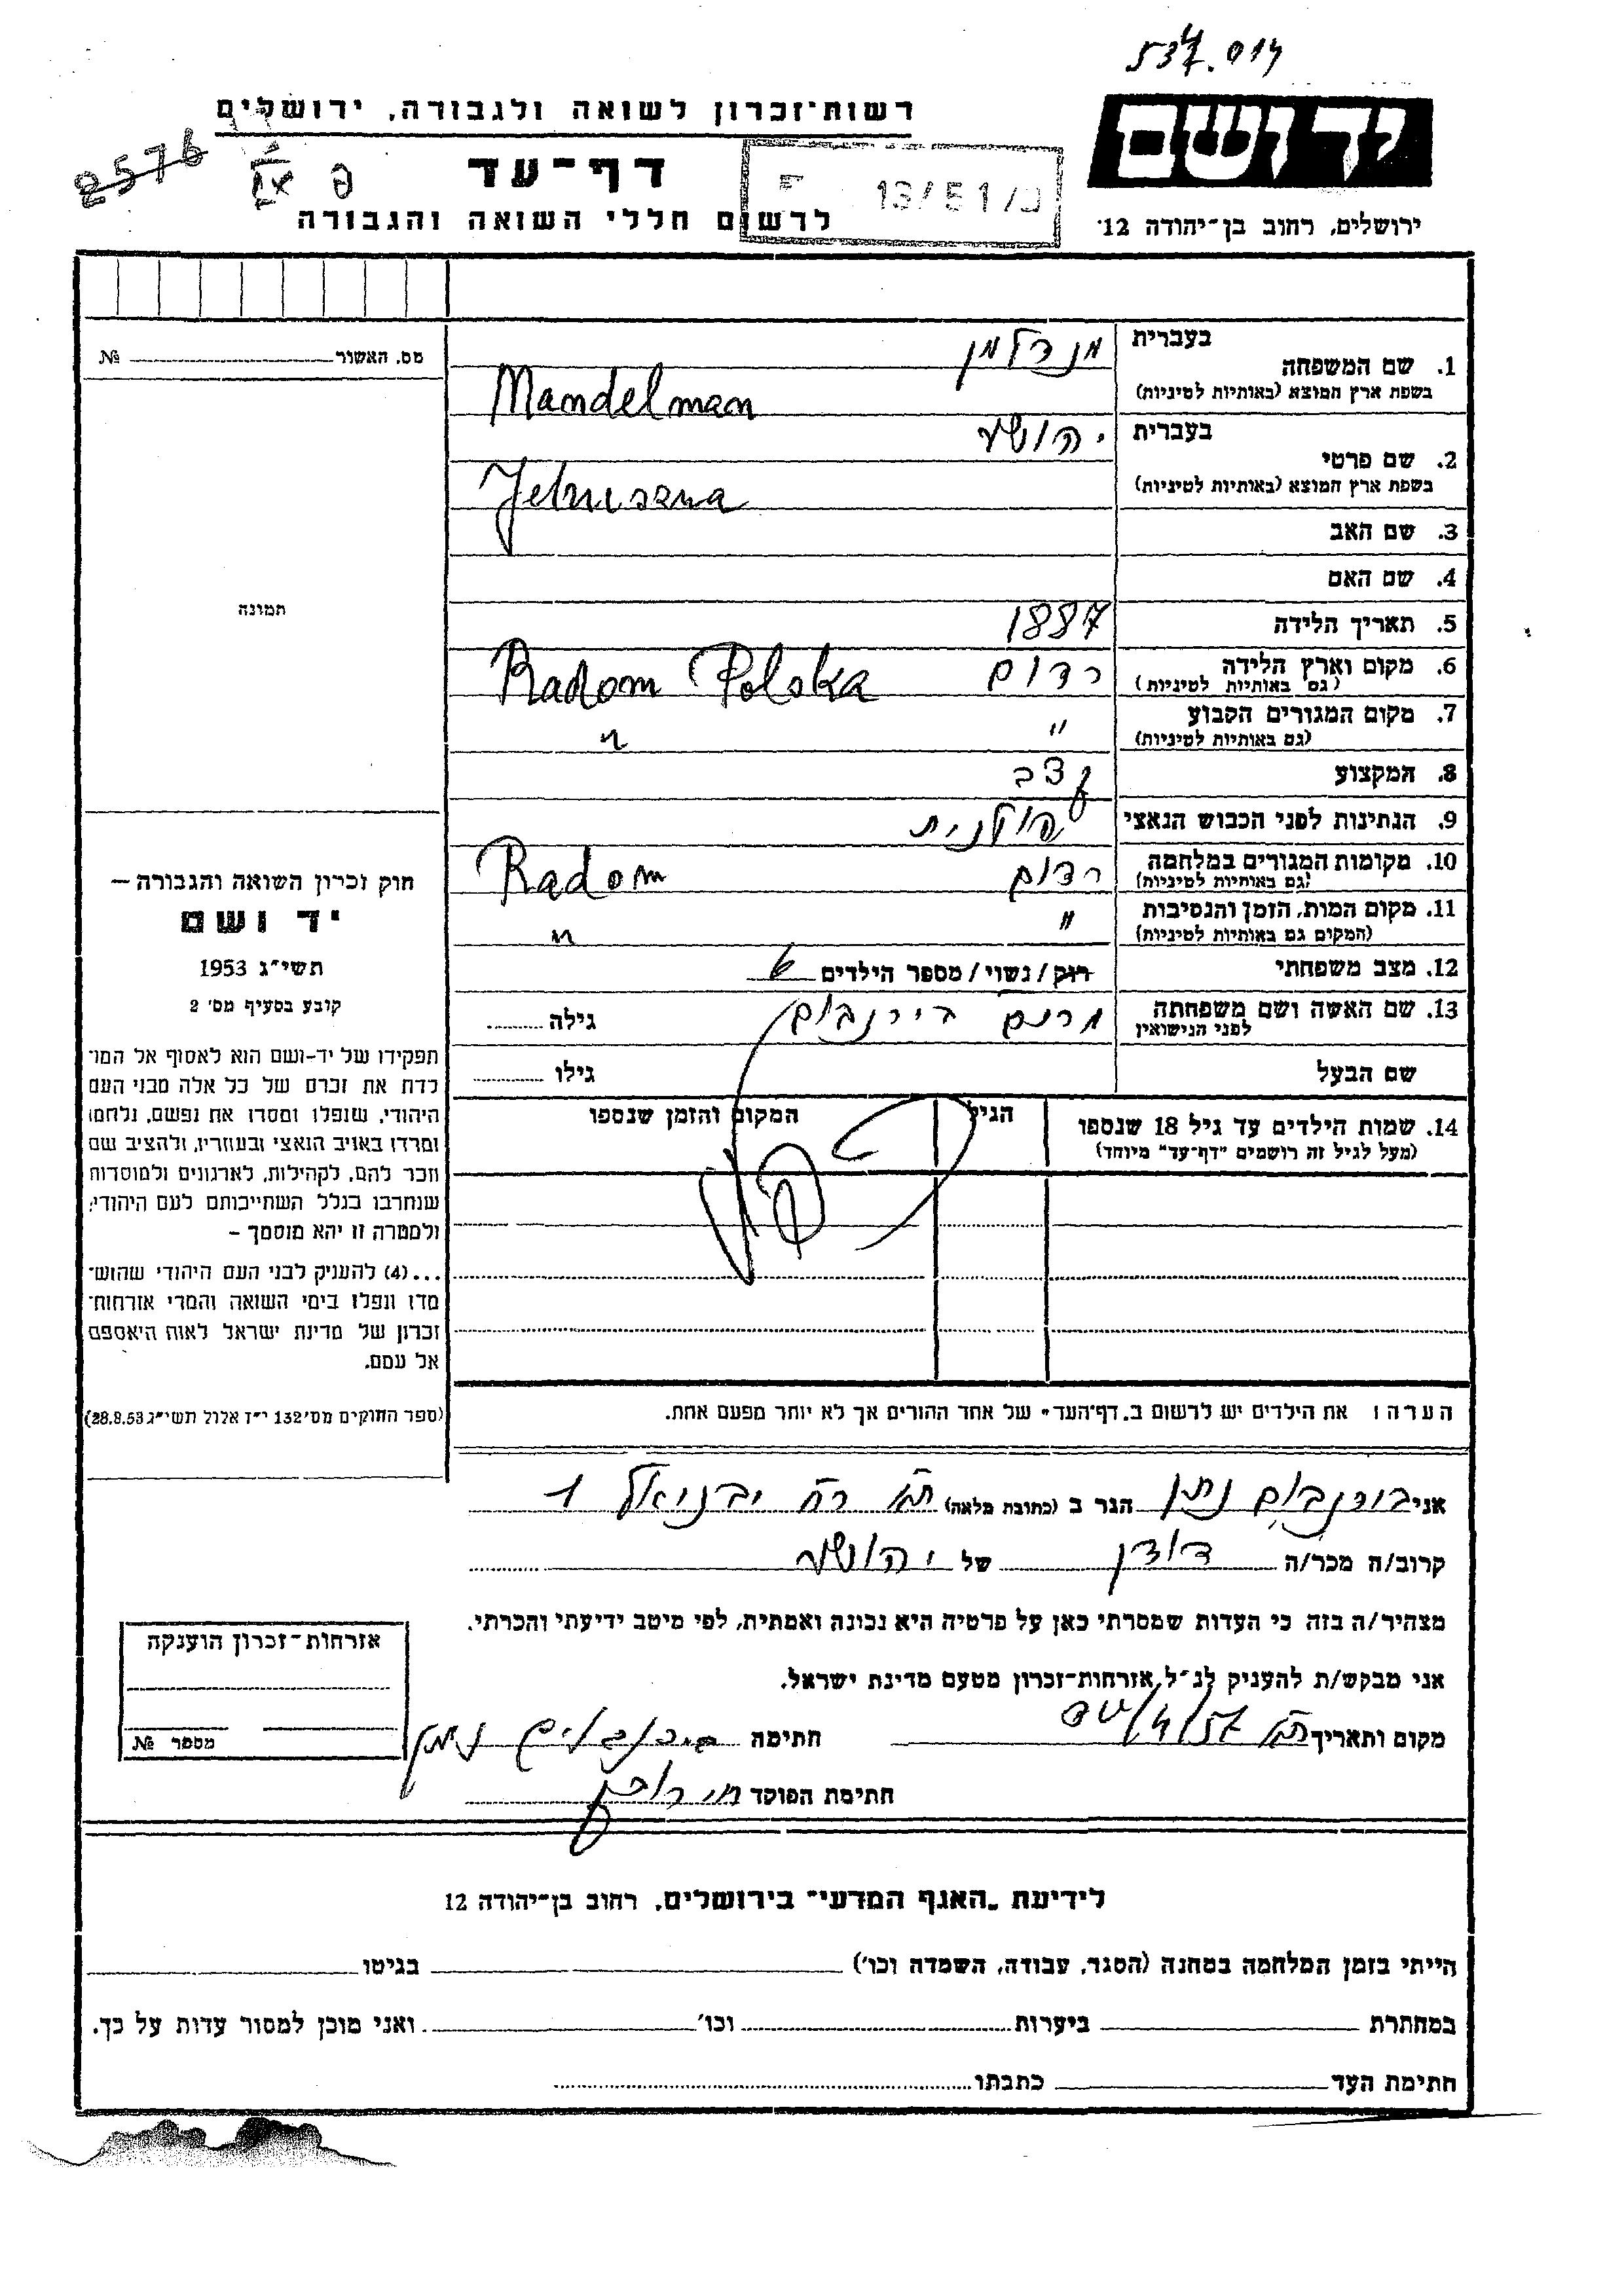 537.014
רשות־זכרון לשואה ולגבורה, ירושלים
יד ושם
2576
דף־עד
לרשום חללי השואה והגבורה
ירושלים, רחוב בן־יהודה 12
מס. האשור № 
1. שם המשפחה
בעברית מנדלמן
בשפת ארץ המוצא (באותיות לטיניות) Mandelman
2. שם פרטי
בעברית יהושע
בשפת ארץ המוצא (באותיות לטיניות) Jehuszua
3. שם האב
4. שם האם
5. תאריך הלידה 1887
6. מקום וארץ הלידה רדום Radom Polska
(גם באותיות לטיניות)
7. מקום המגורים הקבוע " "
(גם באותיות לטיניות)
8. המקצוע קצב
9. הנתינות לפני הכבוש הנאצי פולנית
10. מקומות המגורים במלחמה רדום Radom
(גם באותיות לטיניות)
11. מקום המות, הזמן והנסיבות " "
(המקום גם באותיות לטיניות)
12. מצב משפחתי רוק/נשוי/מספר הילדים 6
13. שם האשה ושם משפחתה מרים בירנבוים גילה
לפני הנישואין
שם הבעל גילו
14. שמות הילדים עד גיל 18 שנספו הגיל המקום והזמן שנספו
(מעל לגיל זה רושמים "דף־עד" מיוחד)
תמונה
חוק זכרון השואה והגבורה —
יד ושם
תשי"ג 1953
קובע בסעיף מס' 2
תפקידו של יד-ושם הוא לאסוף אל המו־
לדת את זכרם של כל אלה מבני העם
היהודי, שנפלו ומסרו את נפשם, נלחמו
ומרדו באויב הנאצי ובעוזריו, ולהציב שם
וזכר להם, לקהילות, לארגונים ולמוסדות
שנחרבו בגלל השתייכותם לעם היהודי;
ולמטרה זו יהא מוסמך –
...(4) להעניק לבני העם היהודי שהוש־
מדו ונפלו בימי השואה והמרי אזרחות־
זכרון של מדינת ישראל לאות היאספם
אל עמם.
(ספר החוקים מס' 132 י"ז אלול תשי"ג 28.8.53)
הערה: את הילדים יש לרשום ב„דף־העד" של אחד ההורים אך לא יותר מפעם אחת.
אני בירנבוים נתן הגר ב (כתובת מלאה) ת"א רח' יבניאל 1
קרוב/ה מכר/ה דודן של יהושע
מצהיר/ה בזה כי העדות שמסרתי כאן על פרטיה היא נכונה ואמתית, לפי מיטב ידיעתי והכרתי.
אני מבקש/ת להעניק לנ"ל אזרחות־זכרון מטעם מדינת ישראל.
מקום ותאריך ת"א חתימה בירנבוים נתן
חתימת הפוקד
אזרחות־זכרון הוענקה
מספר №
לידיעת „האגף המדעי" בירושלים, רחוב בן־יהודה 12
הייתי בזמן המלחמה במחנה (הסגר, עבודה, השמדה וכו') בגיטו
במחתרת ביערות וכו' ואני מוכן למסור עדות על כך.
חתימת העד כתבתו